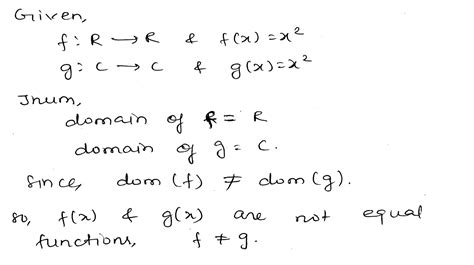 Given,
f : R → R & f(x) = x²
g : C → C & g(x) = x²
Jnum,
domain of f = R
domain of g = C.
Since, dom (f) ≠ dom (g).
So, f(x) & g(x) are not equal
functions, f ≠ g.